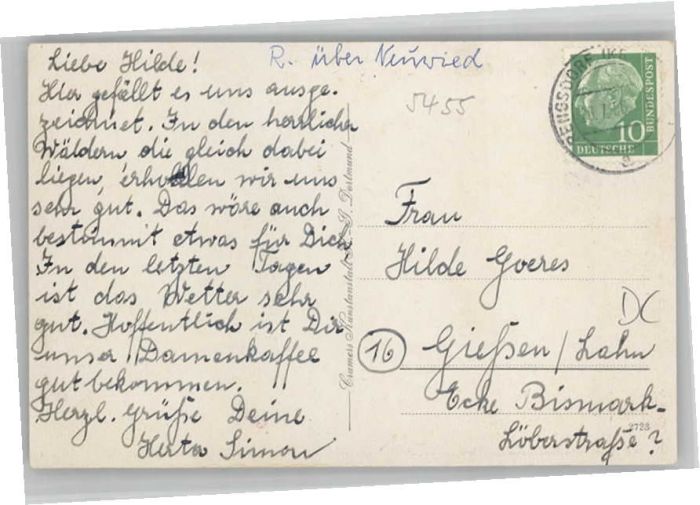 R. über Neuwied
Liebe Hilde!
Hier gefällt es uns ausge-
zeichnet. In den herrlichen
Wäldern, die gleich dabei
liegen, erholen wir uns
sehr gut. Das wäre auch
bestimmt etwas für Dich.
In den letzten Tagen
ist das Wetter sehr
gut. Hoffentlich ist Dir
unser Damenkaffee
gut bekommen.
Herzl. Grüße Deine
Herta Simon
Cramers Kunstanstalt K. G. Dortmund
5455
RENGSDORF
10
DEUTSCHE
BUNDESPOST
Frau
Hilde Goeres
DC
16 Gießen/Lahn
Ecke Bismark-
2723
Löberstraße?